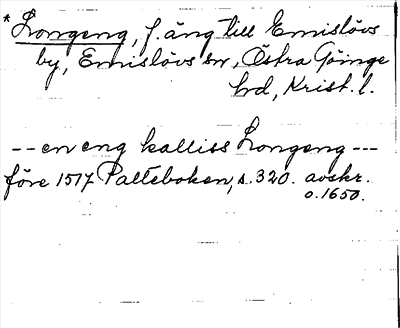 *Longeng, f. äng till Emislövs
by, Emislövs sn, Östra Göinge
hd, Krist. l.
-- en eng kalliss Longeng ---
före 1517 Palteboken, s. 320. avskr.
o. 1650.